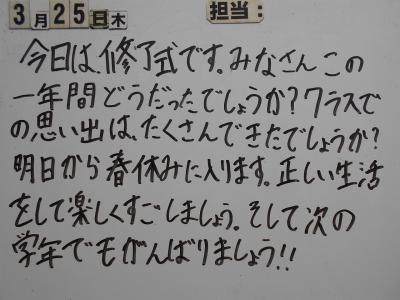 3月25日木 担当:
今日は、修了式です。みなさん この
一年間どうだったでしょうか?クラスで
の思い出は、たくさんできたでしょうか?
明日から春休みに入ります。正しい生活
をして楽しくすごしましょう。そして次の
学年でもがんばりましょう!!